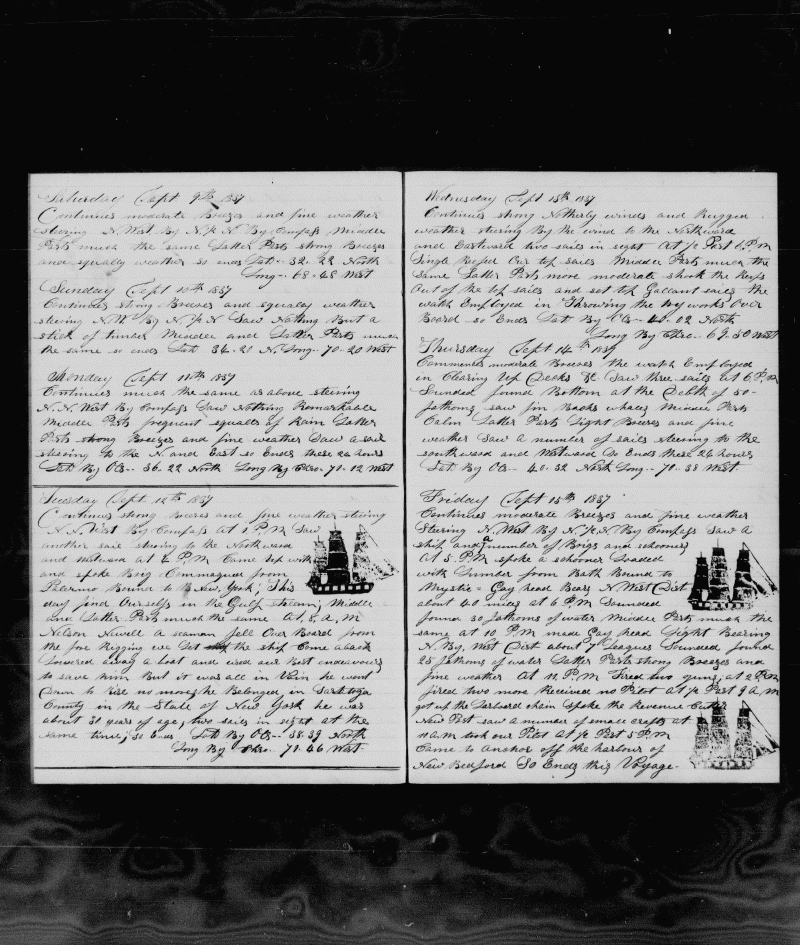 Saturday Sept 9th 1837
Continues moderate Breezes and fine weather
steering N. West By N. ½ N. By Compass Middle
Parts much the same Latter Parts strong Breezes
and squaly weather so ends Lat-- 32.22 North
Long-- 68.48 West
Sunday Sept 10th 1837
Continues strong Breezes and squaly weather
steering N.W. By N. ½ N Saw Nothing But a
stick of timber Middle and Latter Parts much
the same so ends Lat 34.21 N. Long-- 70.20 West
Monday Sept 11th 1837
Continues much the same as above steering
N.N. West By Compass Saw Nothing Remarkable
Middle Parts frequent squalls of Rain Latter
Parts strong Breezes and fine weather Saw a sail
steering to the N. and East so Ends these 24 hours
Lat By Obs-- 36.22 North Long By Chro-- 71.12 West
Tuesday Sept 12th 1837
Continues strong Breezes and fine weather steering
N.N. West By Compass At 1 P.M Saw
another sail steering to the Northward
and Westward at 4 P.M Came up with
and spoke Brig Commaquid from
Palermo Bound to New, York; This
day find Ourselfs in the Gulf stream; Middle
and Latter Parts much the same At, 8, A, M
Nelson Newell a seaman fell Over Board from
the fore Rigging we Let the ship Come aback
Lowered away a boat and used our Best endeavours
to save him But it was all in Vain he went
Down to Rise no more, he Belonged in Saratoga
County in the State of New York he was
about 31 years of age; two sails in sight at the
same time; so Ends Lat By Obs-- 38.39 North
Long By Chro. 71.46 West
Wednesday Sept 13th 1837
Continues strong Notherly winds and Rugged
weather steering By the wind to the Northward
and Eastward two sails in sight At ½ Past 6, P.M
Single Reefed Our top sails Middle Parts much the
same Latter Parts more moderate shook the Reefs
Out of the top sails and set top Gallant sails the
watch Employed in Throwing the try works Over
Board so Ends Lat By Obs-- 40.02 North
Long By Chro-- 69.30 West
Thursday Sept 14th 1837
Commences moderate Breezes the watch Employed
in Clearing Up Decks &c Saw three sails at 6 P.M
Sounded found Bottom at the Debth of 50-
fathoms saw fin Backs whales Middle Parts
Calm Latter Parts Light Breezes and fine
weather Saw a number of sails steering to the
southward and Westward So Ends these 24 hours
Lat By Obs-- 40.32 North Long-- 71.38 West
Friday Sept 15th 1837
Continues moderate Breezes and fine weather
Steering N. West By N. ½ N. By Compass Saw a
ship and a number of Brigs and schooners
At 5 P.M spoke a schooner Loaded
with Lumber from Bath Bound to
Mystic - Gay head Bears N. West Dist
about 40 miles at 6 P.M Sounded
found 30 fathoms of water Middle Parts much the
same at 10 P.M made Gay head Light Bearing
N. By. West Dist about 7 Leagues Sounded found
25 fathoms of water Latter Parts strong Breezes and
fine weather At 11. P.M Fired two guns; at 2 P.M
fired two more Received no Pilot At ½ Past 9 A, M
got up the Larboard chain spoke the Revenue Cutter
New Port saw a number of small crafts at
11 A.M took our Pilot At ½ Past 5 P.M
Came to Anchor off the harbour of
New Bedford So Ends this Voyage-